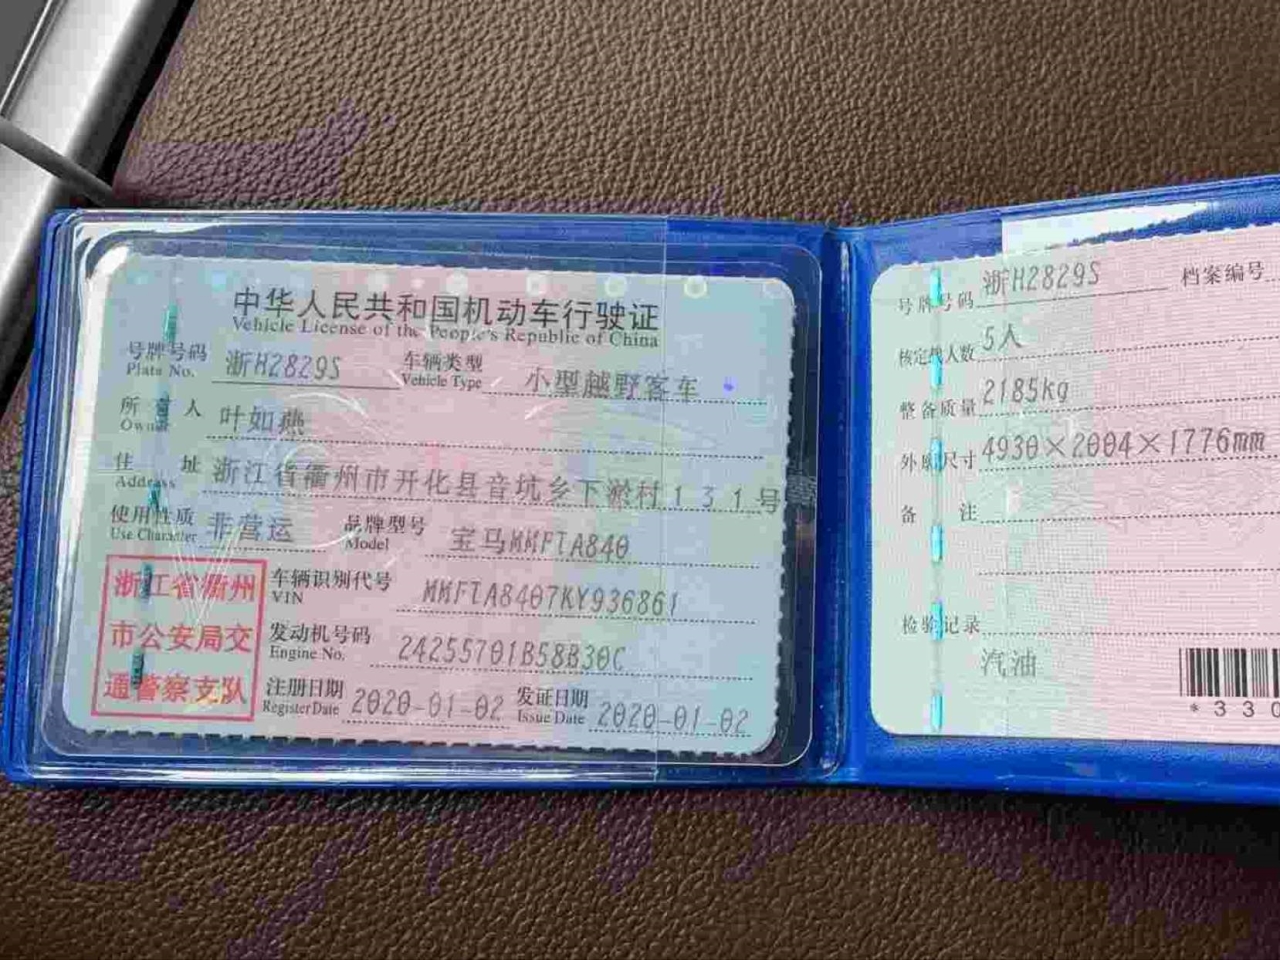 中华人民共和国机动车行驶证
Vehicle License of the People's Republic of China
号牌号码 浙H2829S 车辆类型 小型越野客车
Plate No. Vehicle Type
所有人 叶如燕
Owner
住址 浙江省衢州市开化县音坑乡下淤村131号
Address
使用性质 非营运 品牌型号 宝马MMFTA840
Use Character Model
浙江省衢州
市公安局交
通警察支队
车辆识别代号 MMFTA8407KY936861
VIN
发动机号码 24255701B58B30C
Engine No.
注册日期 2020-01-02 发证日期 2020-01-02
Register Date Issue Date
号牌号码 浙H2829S 档案编号
核定载人数 5人
整备质量 2185kg
外廓尺寸 4930×2004×1776mm
备注
检验记录
汽油
*330